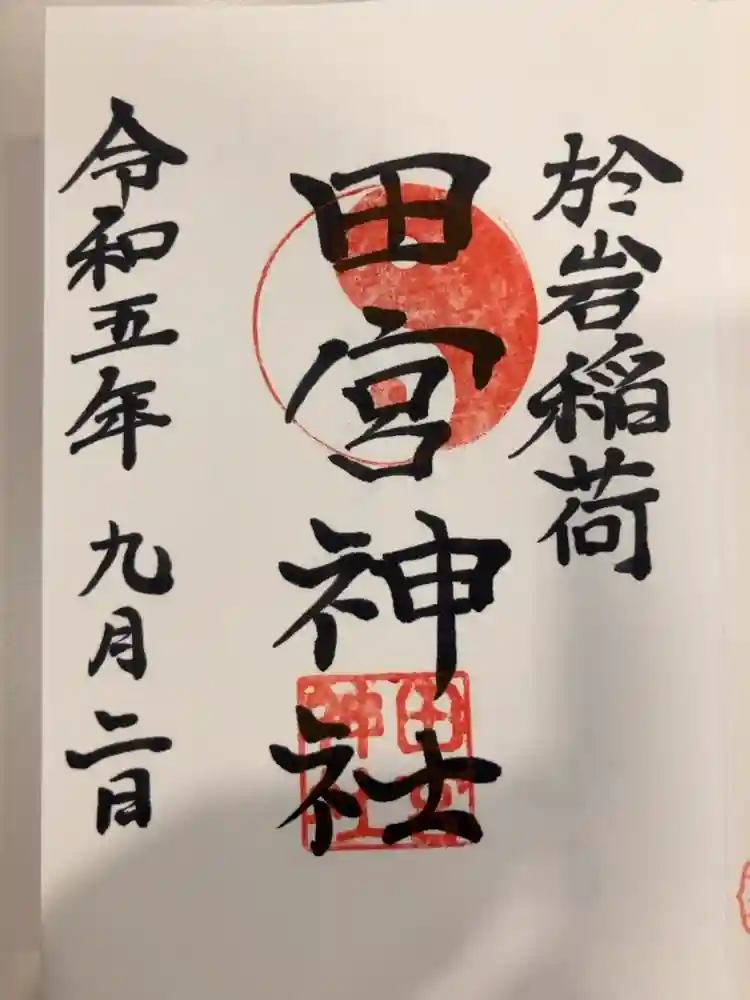 於岩稲荷
田宮神社
田宮神社
令和五年 九月二日